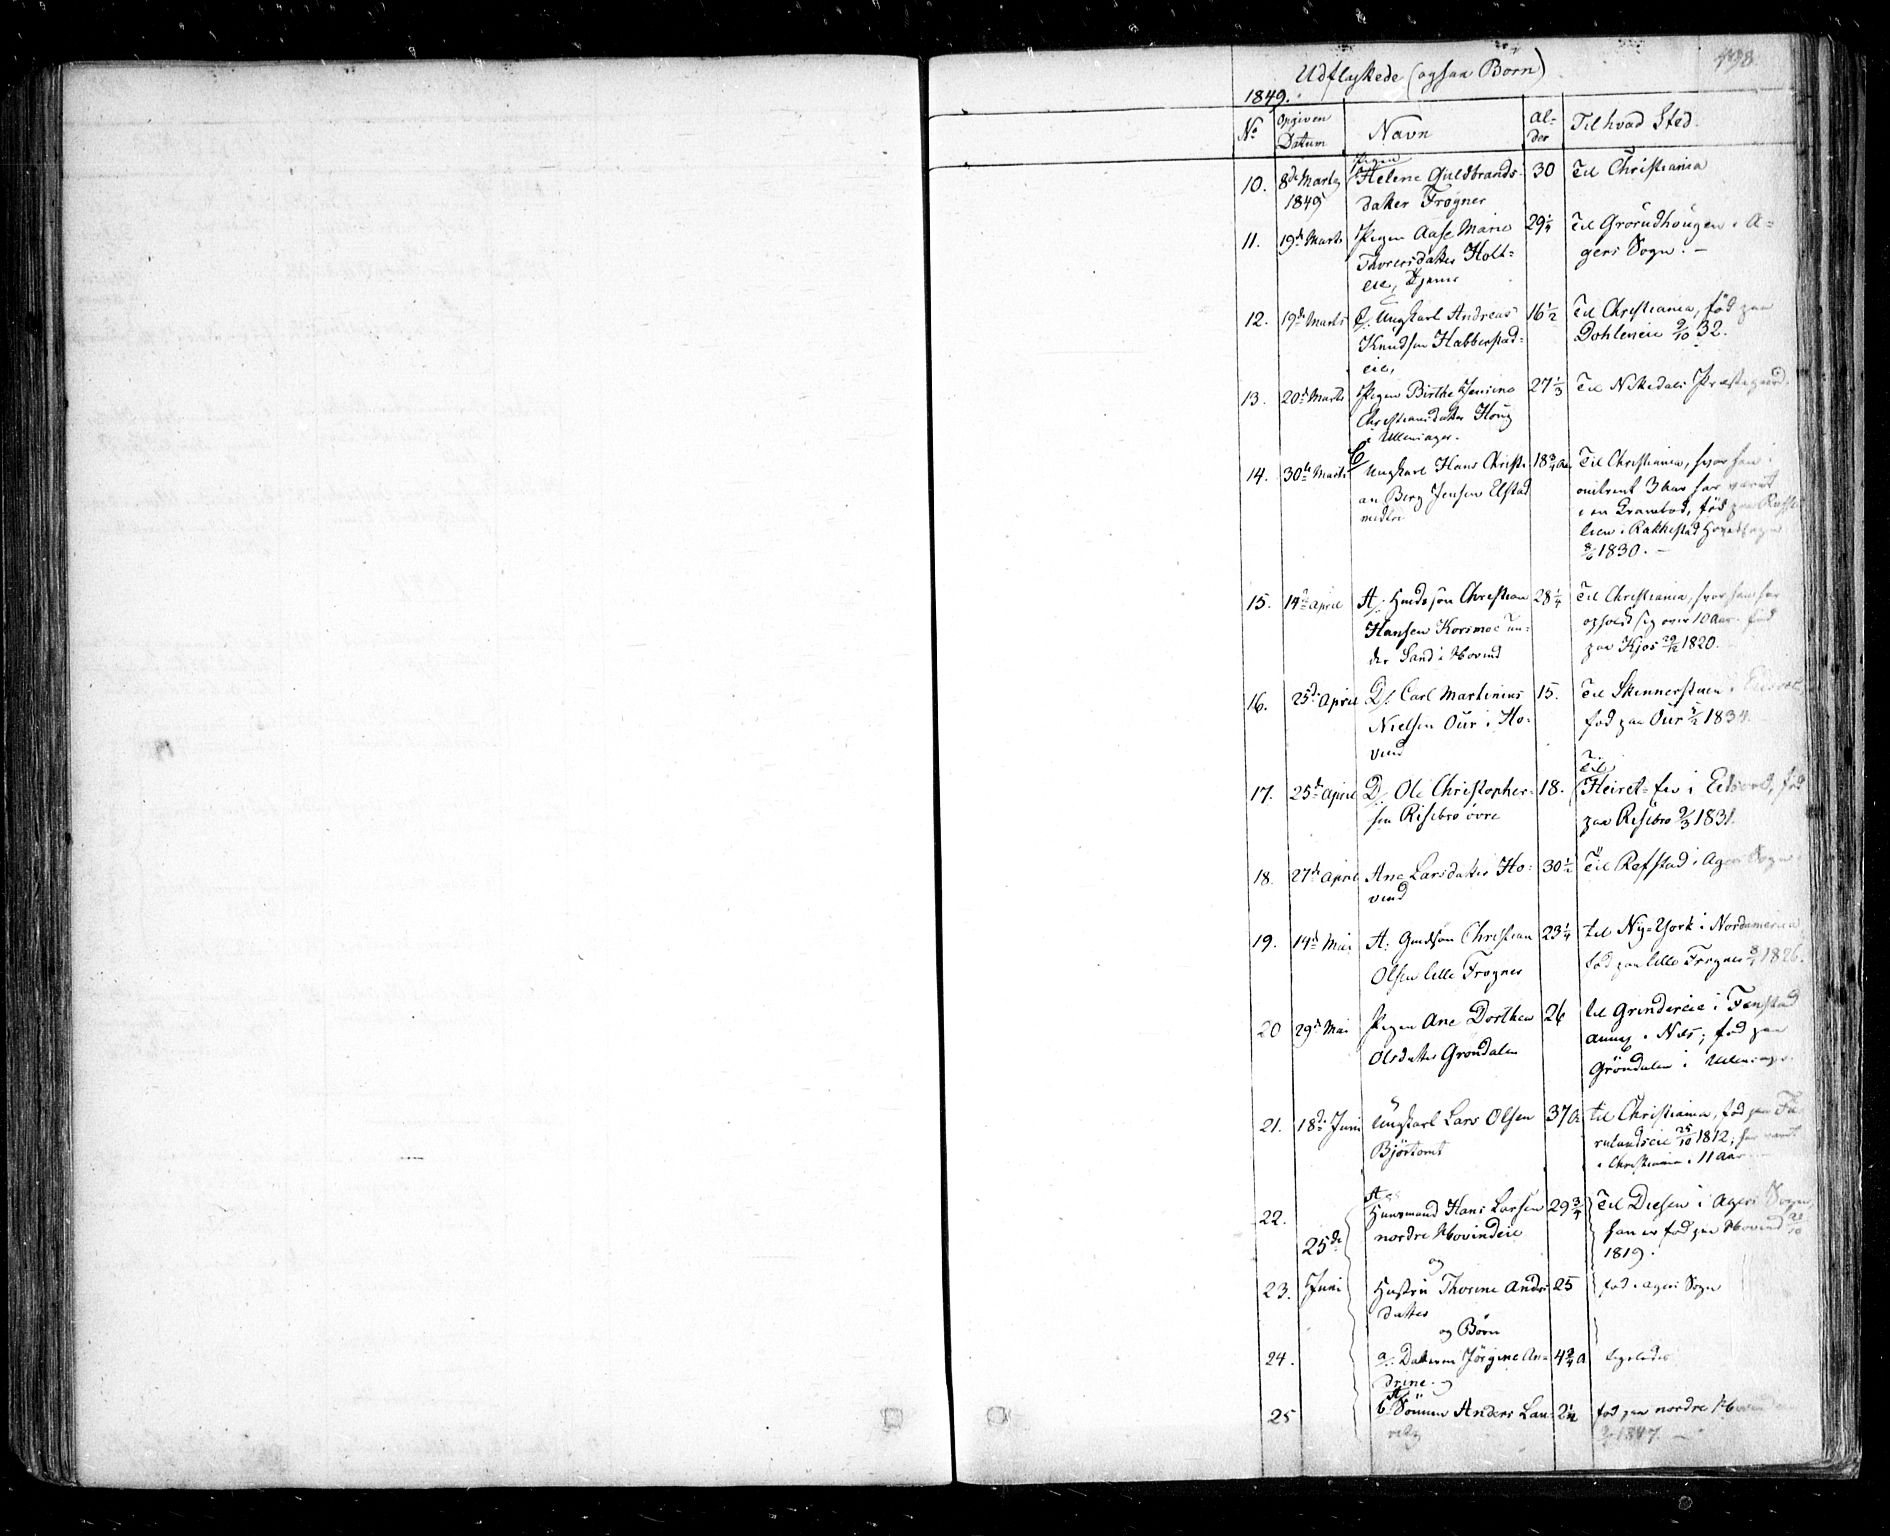 Udflyttede (ogsaa Børn)
1849.
No
Opgiven Datum
Navn
Al-
der
Til hvad Sted.
10. 8de Marts 1849 Pigen Helene Guldbrands-
datter Frogner 30 Til Christiania
11. 19de Marts Pigen Aase Marie
Thorersdatter Holt-
eie, 29 1/4 Til Grorudhougen i A-
gers Sogn. -
12. 19de Marts Ungkarl Andreas
Knudsen Habberstad-
eie, 16 1/2 Til Christiania, født paa
Dohleneie 9/10 32.
13. 20de Marts Pigen Birthe Jensine
Christiansdatter Houg
i Ullensager. 27 1/3 Til Nitedals Præstegaard.
14. 30te Marts Ungkarl Hans Christi-
an Berg Jensen Elstad
nedre 18 3/4 Aar Til Christiania, hvor han i
omtrent 3 Aar har været
født paa
i Rakkestad Hovedsogn
1830. -
15. 14de April A. Huusmand Christian
Hansen Korsmoe un-
der Sand i Hovind 28 1/4 Til Christiania, hvor han har
opholdt sig over 10 Aar. født
paa Kjos 29/12 1820.
16. 25de April D. Carl Martinius
Nielsen Our i Ho-
vind 15. Til Skinnerstuen i Eidsvold,
født paa Our 1834.
17. 25de April D. Ole Christopher-
sen Risebro øvre 18. Til
i Eidsvold, født
paa Risebro 9/3 1831.
18. 27de April Ane Larsdatter Ho-
vind 30 1/2 Til Refstad i Agers Sogn
19. 14de Mai A. Christian
Olsen lille Frogner 23 1/4 til Ny-York i Nordamerica
født paa lille Frogner 1826.
20 29de Mai Pigen Ane Dorthea
Olsdatter Grøndalen 26 til Grindereie i Fenstad
annex i Næs; født paa
Grøndalen i Ullensager.
21. 18de Juni Ungkarl Lars Olsen
Bjørtomt 37 til Christiania, født paa
25/10 1812; har været
i Christiania i 11 Aar
22. 25de Juni A. Huusmand Hans Larsen
nordre Hovindeie 29 3/4 Til Diesen i Agers Sogn,
han er født paa Hovind
1819.
og
23. Hustru Thorine Anders
datter 25 født i Agers Sogn
og Børn
24. a. Datteren Jørgine An-
drine. 4 3/4 A ligeledes
25 b. Sønnen Anders Lau-
ritz 2 1/2 født paa nordre Hovindeie
1847. -